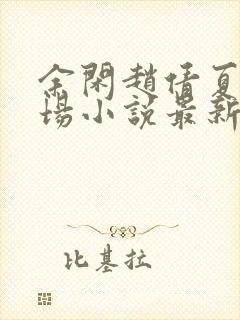 余閑趙倩夏
場小説最新
比基拉